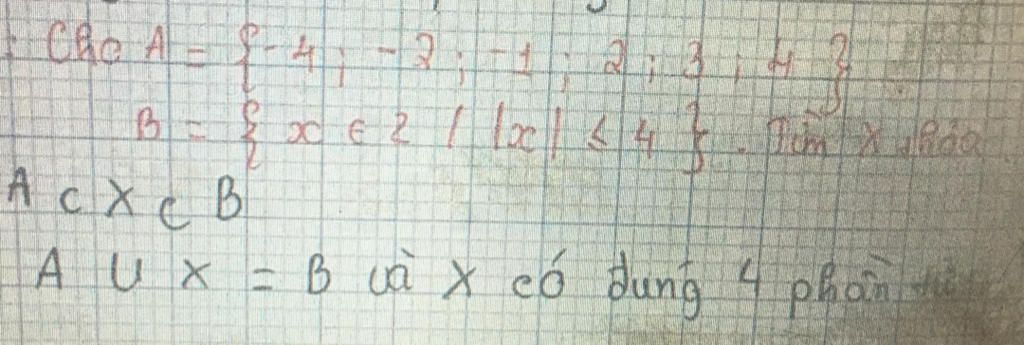 Cho A = { -4 ; -2 ; -1 ; 2 ; 3 ; 4 }
B = { x ∈ Z | |x| ≤ 4 } . Tìm X thỏa
A ⊂ X ⊂ B
A ∪ X = B và X có đúng 4 phần